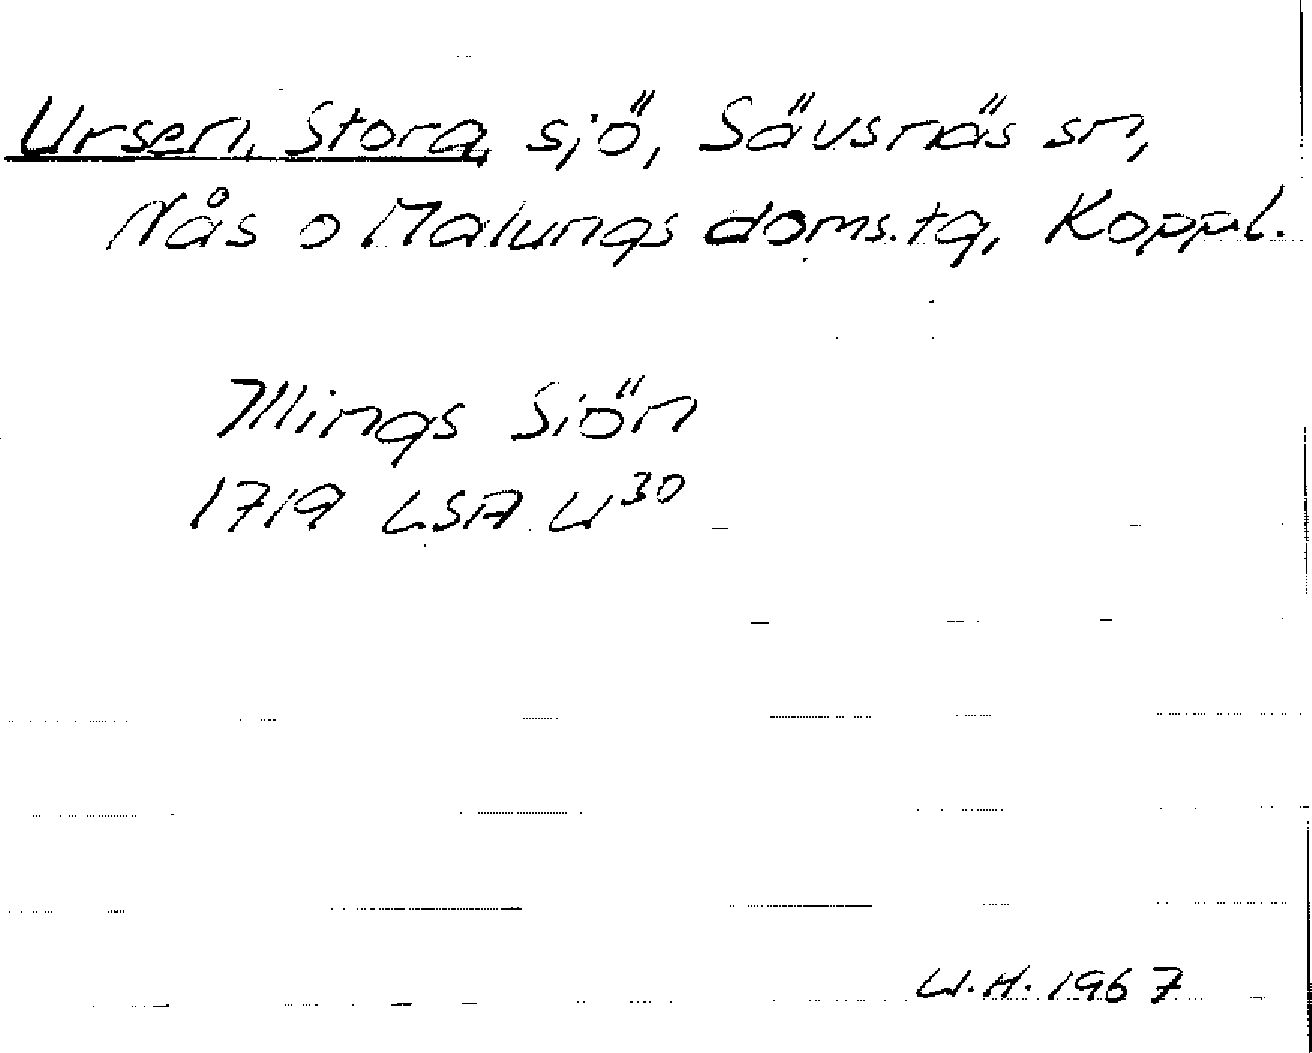 Ursen, Stora, sjö, Sävsnäs sn,
Nås o Malungs doms.tg, Koppl.
Illings Siön
1719 LSA W 30
W.H. 1967